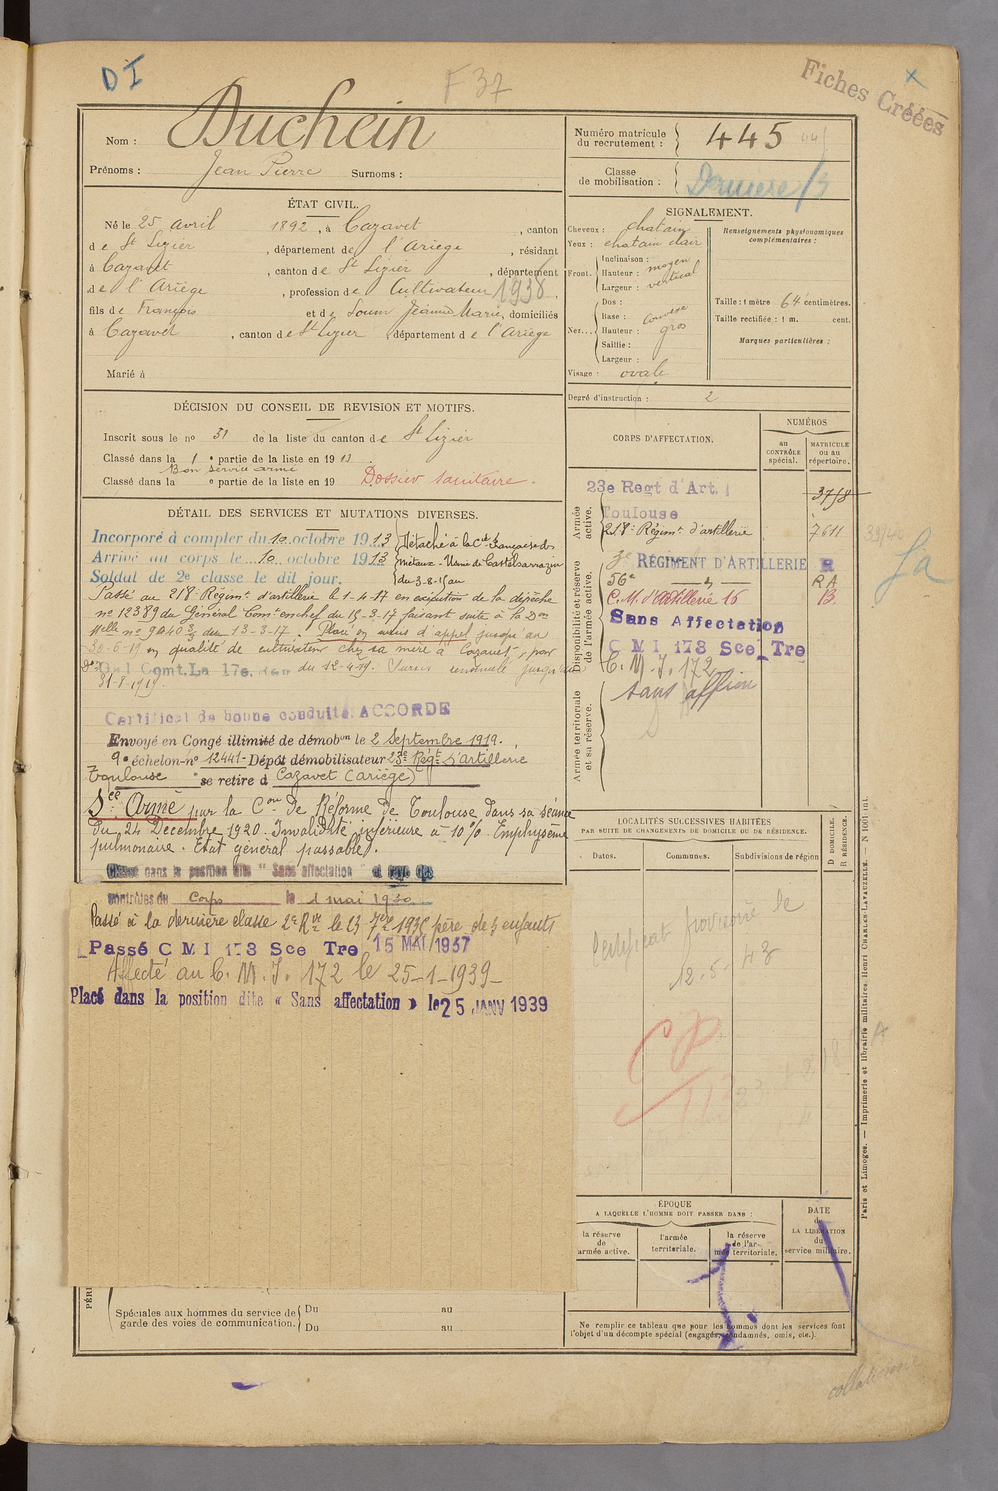 DI
F 37
Fiches Créées
Nom : Duchein
Prénoms : Jean Pierre Surnoms :
Numéro matricule du recrutement : 445
Classe de mobilisation : Dernière
ÉTAT CIVIL.
Né le 25 avril 1892, à Cazavet, canton
de St Lizier, département de l'Ariège, résidant
à Cazavet, canton de St Lizier, département
de l'Ariège, profession de Cultivateur 1938
fils de François et de Soum Jeanne Marie, domiciliés
à Cazavet, canton de St Lizier, département de l'Ariège
Marié à
SIGNALEMENT.
Cheveux : chatain
Yeux : chatain clair
Front. Inclinaison : moyen
Hauteur : vertical
Largeur :
Nez... Dos :
Base :
Hauteur : gros
Saillie :
Largeur :
Visage : ovale
Renseignements physionomiques complémentaires :
Taille : 1 mètre 64 centimètres.
Taille rectifiée : 1 m. cent.
Marques particulières :
Degré d'instruction : 2
DÉCISION DU CONSEIL DE REVISION ET MOTIFS.
Inscrit sous le no 31 de la liste du canton de St Lizier
Classé dans la 1e partie de la liste en 1913
Bon service armé
Classé dans la e partie de la liste en 19
Dossier sanitaire.
DÉTAIL DES SERVICES ET MUTATIONS DIVERSES.
Incorporé à compter du 10 octobre 1913
Arrivé au corps le 10 octobre 1913
Soldat de 2e classe le dit jour.
Détaché à la Cie française des
métaux - Usine de Castelsarrazin
du 3-8-15 au
Passé au 218e Régimt d'artillerie le 1-4-17 en exécution de la dépêche
no 12389 du Général Comt en chef du 15-3-17 faisant suite à la Don
Melle no 9040 3/3 du 13-3-17. Placé en sursis d'appel jusqu'au
30-6-19 en qualité de cultivateur chez sa mère à Cazavet, par
Gal Comt. La 17e du 12-4-19. Sursis renouvelé jusqu'au
31-8-1919.
Certificat de bonne conduite ACCORDÉ
Envoyé en Congé illimité de démobon le 2 Septembre 1919.
9e échelon-no 12441 - Dépôt démobilisateur 23e Régt d'artillerie
Toulouse se retire à Cazavet (Ariège)
Sce Armé par la Con de Réforme de Toulouse dans sa séance
du 24 Décembre 1920. Invalidité inférieure à 10%. Emphysème
pulmonaire. Etat général passable.
Classé dans la position dite "Sans affectation" et rayé des
contrôles du Corps le 1 mai 1930
Passé à la dernière classe 2e Rve le 23 7bre père de 5 enfants
Passé C M I 173 Sce Tre 15 MAI 1937
Affecté au C. M. I. 172 le 25-1-1939-
Placé dans la position dite « Sans affectation » le 25 JANV 1939
CORPS D'AFFECTATION.
NUMÉROS
au CONTRÔLE spécial.
MATRICULE ou au répertoire.
Armée active.
23e Regt d'Art.
Toulouse
3758
218e Régimt d'artillerie 7611
Disponibilité et réserve de l'armée active.
3e RÉGIMENT D'ARTILLERIE R
56e RA
C. M. d'Artillerie 16 B.
Sans Affectation
C M I 173 Sce Tre
C. M. I. 172
Armée territoriale et sa réserve.
sans affion
LOCALITÉS SUCCESSIVES HABITÉES
PAR SUITE DE CHANGEMENTS DE DOMICILE OU DE RÉSIDENCE.
Dates.
Communes.
Subdivisions de région
D DOMICILE.
R RÉSIDENCE.
Certificat provisoire le
12-5-43
CP
ÉPOQUE
A LAQUELLE L'HOMME DOIT PASSER DANS :
la réserve de armée active.
l'armée territoriale.
la réserve de l'armée territoriale.
DATE de LA LIBÉRATION du service militaire.
Spéciales aux hommes du service de garde des voies de communication.
Du au
Du au
Ne remplir ce tableau que pour les hommes dont les services font
l'objet d'un décompte spécial (engagés, condamnés, omis, etc.).
Paris et Limoges. — Imprimerie et librairie militaires Henri CHARLES-LAVAUZELLE. — N 1601 int.